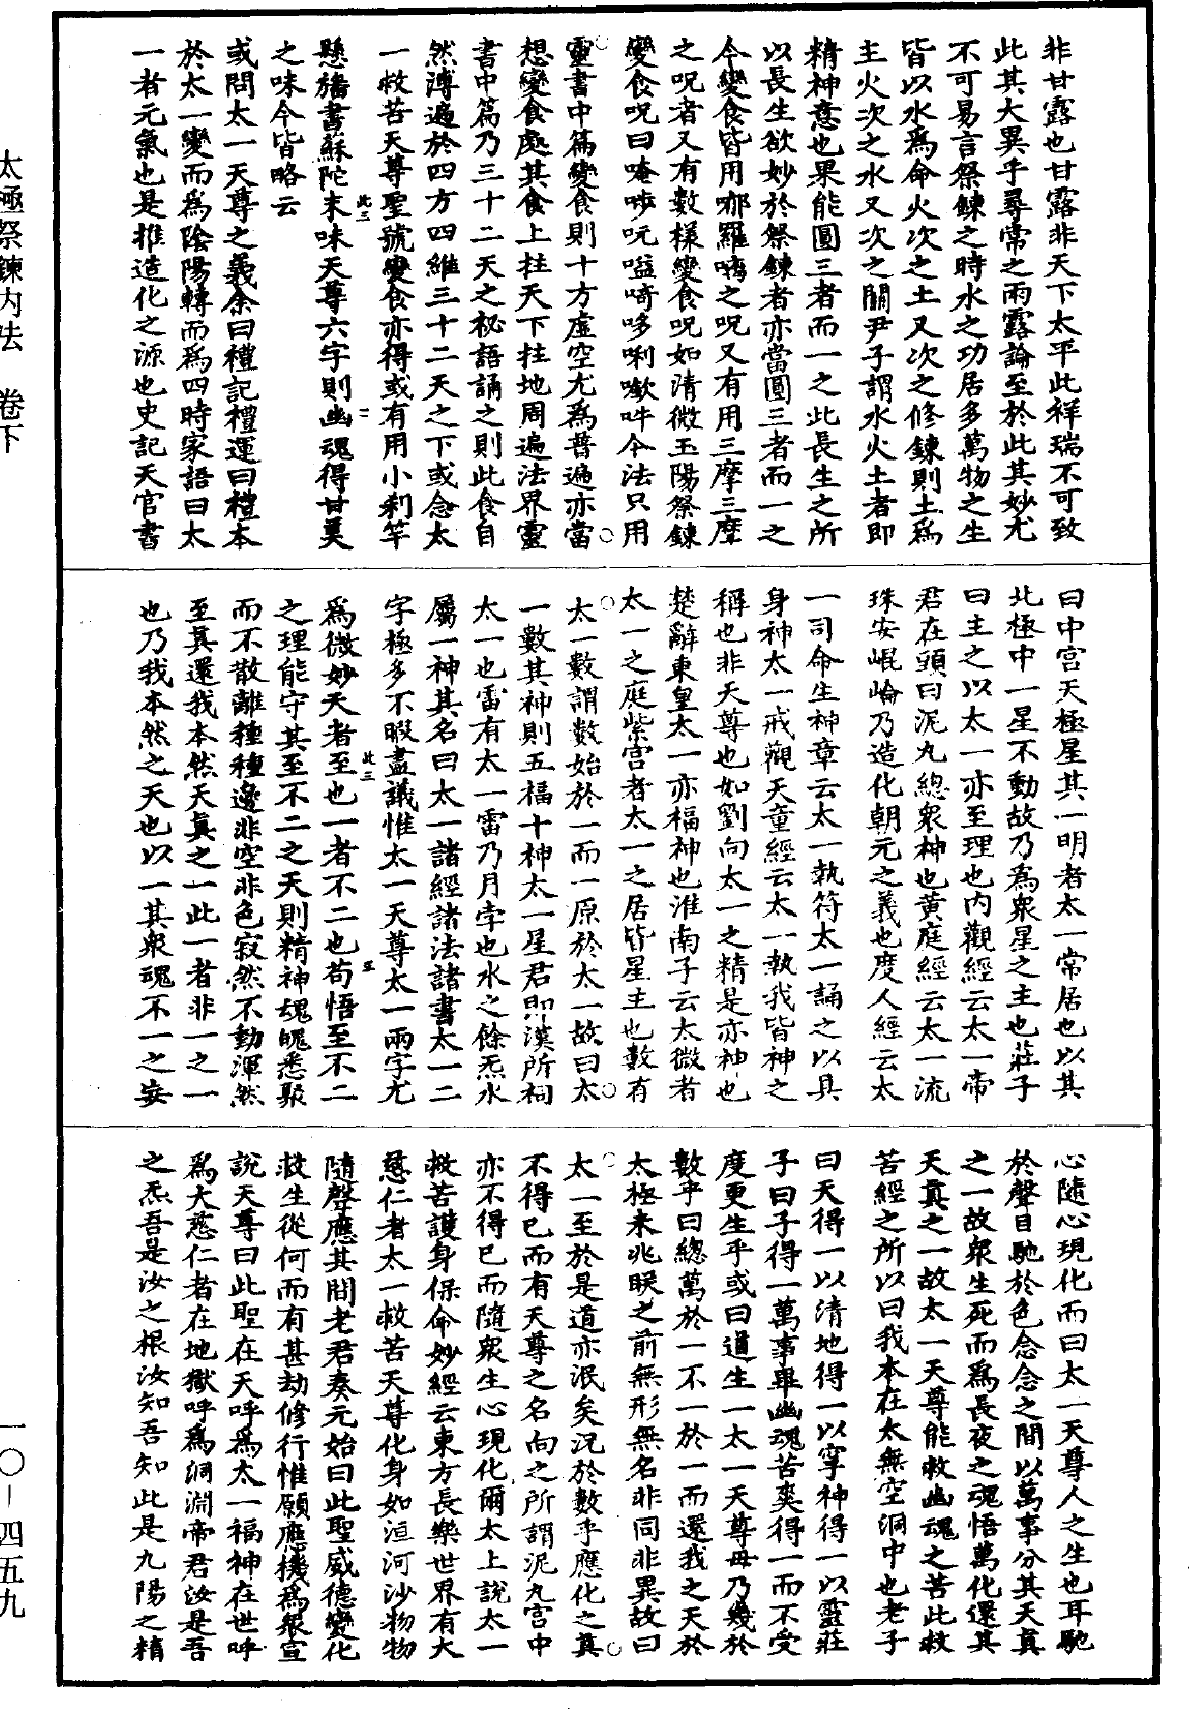 太極祭鍊內法　卷下
一〇—四五九
非甘露也甘露非天下太平此祥瑞不可致
此其大異乎尋常之雨露論至於此其妙尤
不可易言祭鍊之時水之功居多萬物之生
皆以水爲命火次之土又次之修鍊則土爲
主火次之水又次之關尹子謂水火土者即
精神意也果能圓三者而一之此長生之所
以長生欲妙於祭鍊者亦當圓三者而一之
今變食皆用哪羅嚩之呪又有用三摩三摩
之呪者又有數樣變食呪如清微玉陽祭鍊
變食呪曰唵吵吭嗌㗢哆唎囐吽今法只用
靈書中篇變食則十方虛空尤爲普遍亦當
想變食處其食上拄天下拄地周遍法界靈
書中篇乃三十二天之祕語誦之則此食自
然溥遍於四方四維三十二天之下或念太
一救苦天尊聖號變食亦得或有用小剎竿
懸旛書蘇陀末味天尊六字則幽魂得甘美
之味今皆略云
或問太一天尊之義余曰禮記禮運曰禮本
於太一變而爲陰陽轉而爲四時家語曰太
一者元氣也是推造化之源也史記天官書
曰中宮天極星其一明者太一常居也以其
北極中一星不動故乃爲衆星之主也莊子
曰主之以太一亦至理也內觀經云太一帝
君在頭曰泥丸總衆神也黃庭經云太一流
珠安崐崘乃造化朝元之義也度人經云太
一司命生神章云太一執符太一誦之以具
身神太一戒觀天童經云太一執我皆神之
稱也非天尊也如劉向太一之精是亦神也
楚辭東皇太一亦福神也淮南子云太微者
太一之庭紫宮者太一之居皆星主也數有
太一數謂數始於一而一原於太一故曰太
一數其神則五福十神太一星君即漢所祠
太一也雷有太一雷乃月孛也水之餘炁水
屬一神其名曰太一諸經諸法諸書太一二
字極多不暇盡議惟太一天尊太一兩字尤
爲微妙天者至也一者不二也苟悟至不二
之理能守其至不二之天則精神魂魄悉聚
而不散離種種邊非空非色寂然不動渾然
至真還我本然天真之一此一者非一之一
也乃我本然之天也以一其衆魂不一之妄
心隨心現化而曰太一天尊人之生也耳馳
於聲目馳於色念念之間以萬事分其天真
之一故衆生死而爲長夜之魂悟萬化還其
天真之一故太一天尊能救幽魂之苦此救
苦經之所以曰我本在太無空洞中也老子
曰天得一以清地得一以寧神得一以靈莊
子曰子得一萬事畢幽魂苦爽得一而不受
度更生乎或曰道生一太一天尊毋乃幾於
數乎曰總萬於一不一於一而還我之天於
太極未兆眹之前無形無名非同非異故曰
太一至於是道亦泯矣況於數乎應化之真
不得已而有天尊之名向之所謂泥丸宮中
亦不得已而隨衆生心現化爾太上說太一
救苦護身保命妙經云東方長樂世界有大
慈仁者太一救苦天尊化身如洹河沙物物
隨聲應其間老君奏元始曰此聖威德變化
救生從何而有甚劫修行惟願應機爲衆宣
說天尊曰此聖在天呼爲太一福神在世呼
爲大慈仁者在地獄呼爲洞淵帝君汝是吾
之炁吾是汝之根汝知吾知此是九陽之精